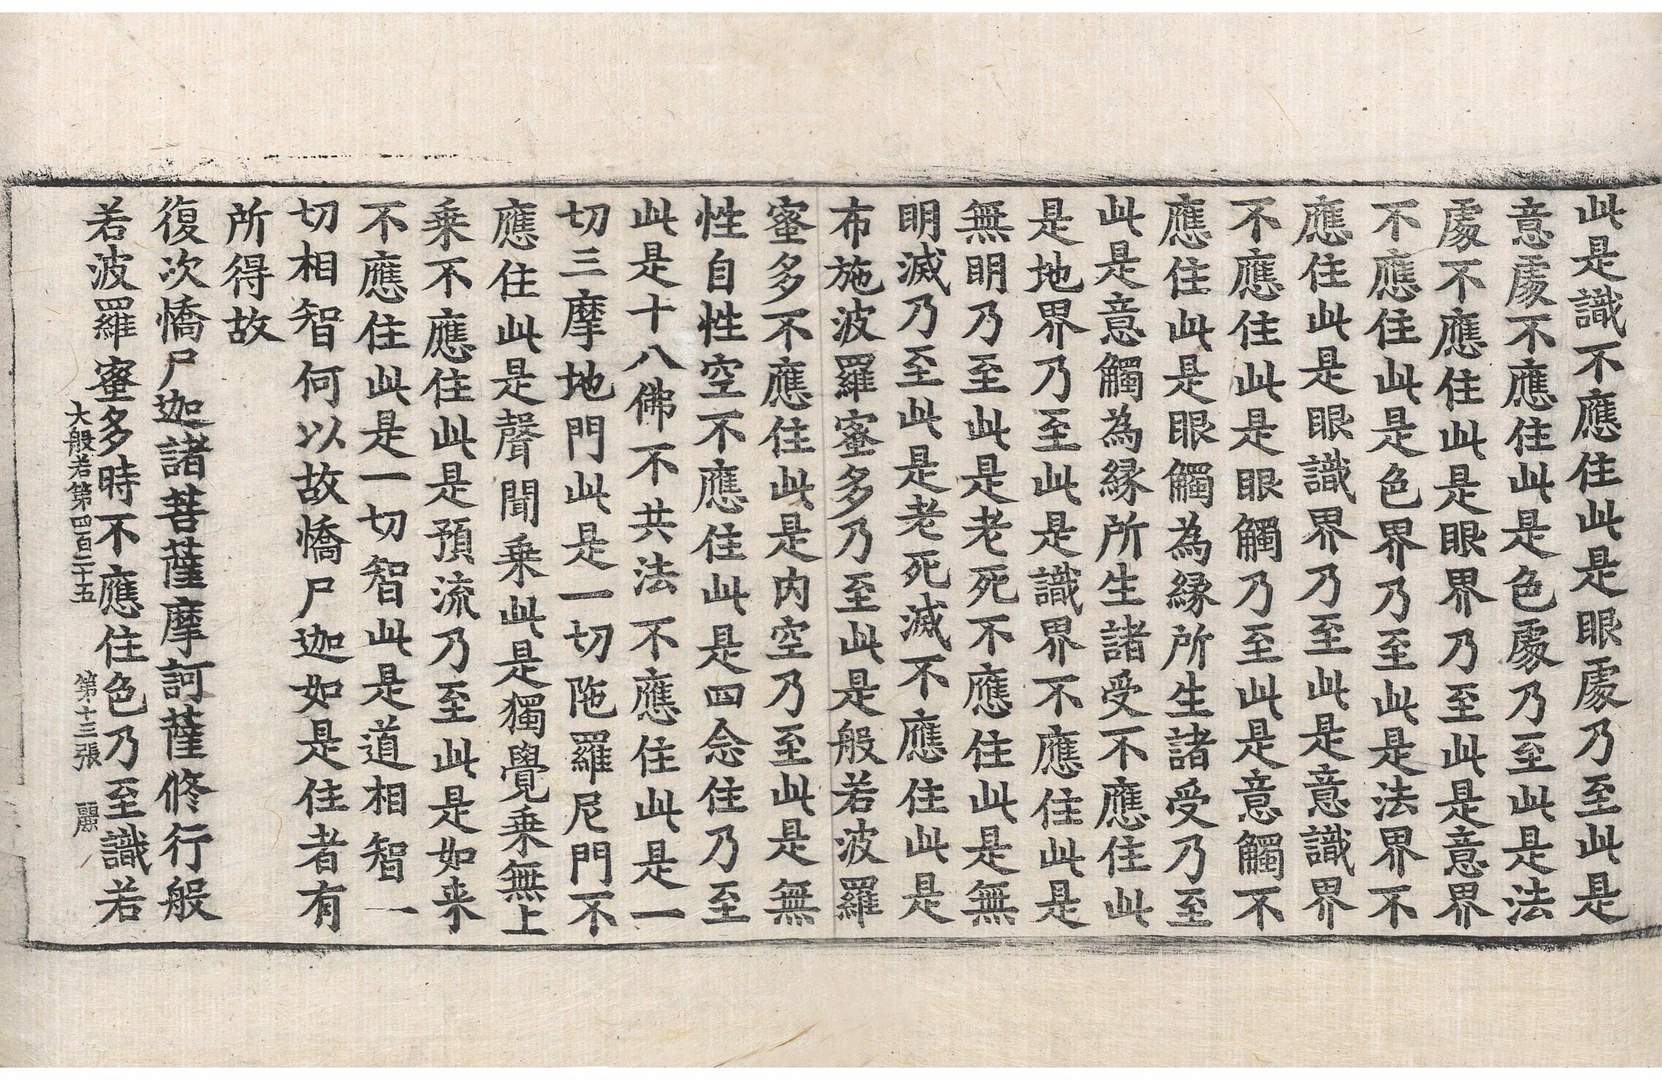 此是識不應住此是眼處乃至此是
意處不應住此是色處乃至此是法
處不應住此是眼界乃至此是意界
不應住此是色界乃至此是法界不
應住此是眼識界乃至此是意識界
不應住此是眼觸乃至此是意觸不
應住此是眼觸為縁所生諸受乃至
此是意觸為縁所生諸受不應住此
是地界乃至此是識界不應住此是
無眀乃至此是老死不應住此是無
眀滅乃至此是老死滅不應住此是
布施波羅蜜多乃至此是般若波羅
蜜多不應住此是内空乃至此是無
性自性空不應住此是四念住乃至
此是十八佛不共法不應住此是一
切三摩地門此是一切陁羅尼門不
應住此是聲聞乗此是獨覺乗無上
乗不應住此是預流乃至此是如来
不應住此是一切智此是道相智一
切相智何以故憍尸迦如是住者有
所得故
復次憍尸迦諸菩薩摩訶薩修行般
若波羅蜜多時不應住色乃至識若
大般若第四百二十五 第十三張 麗